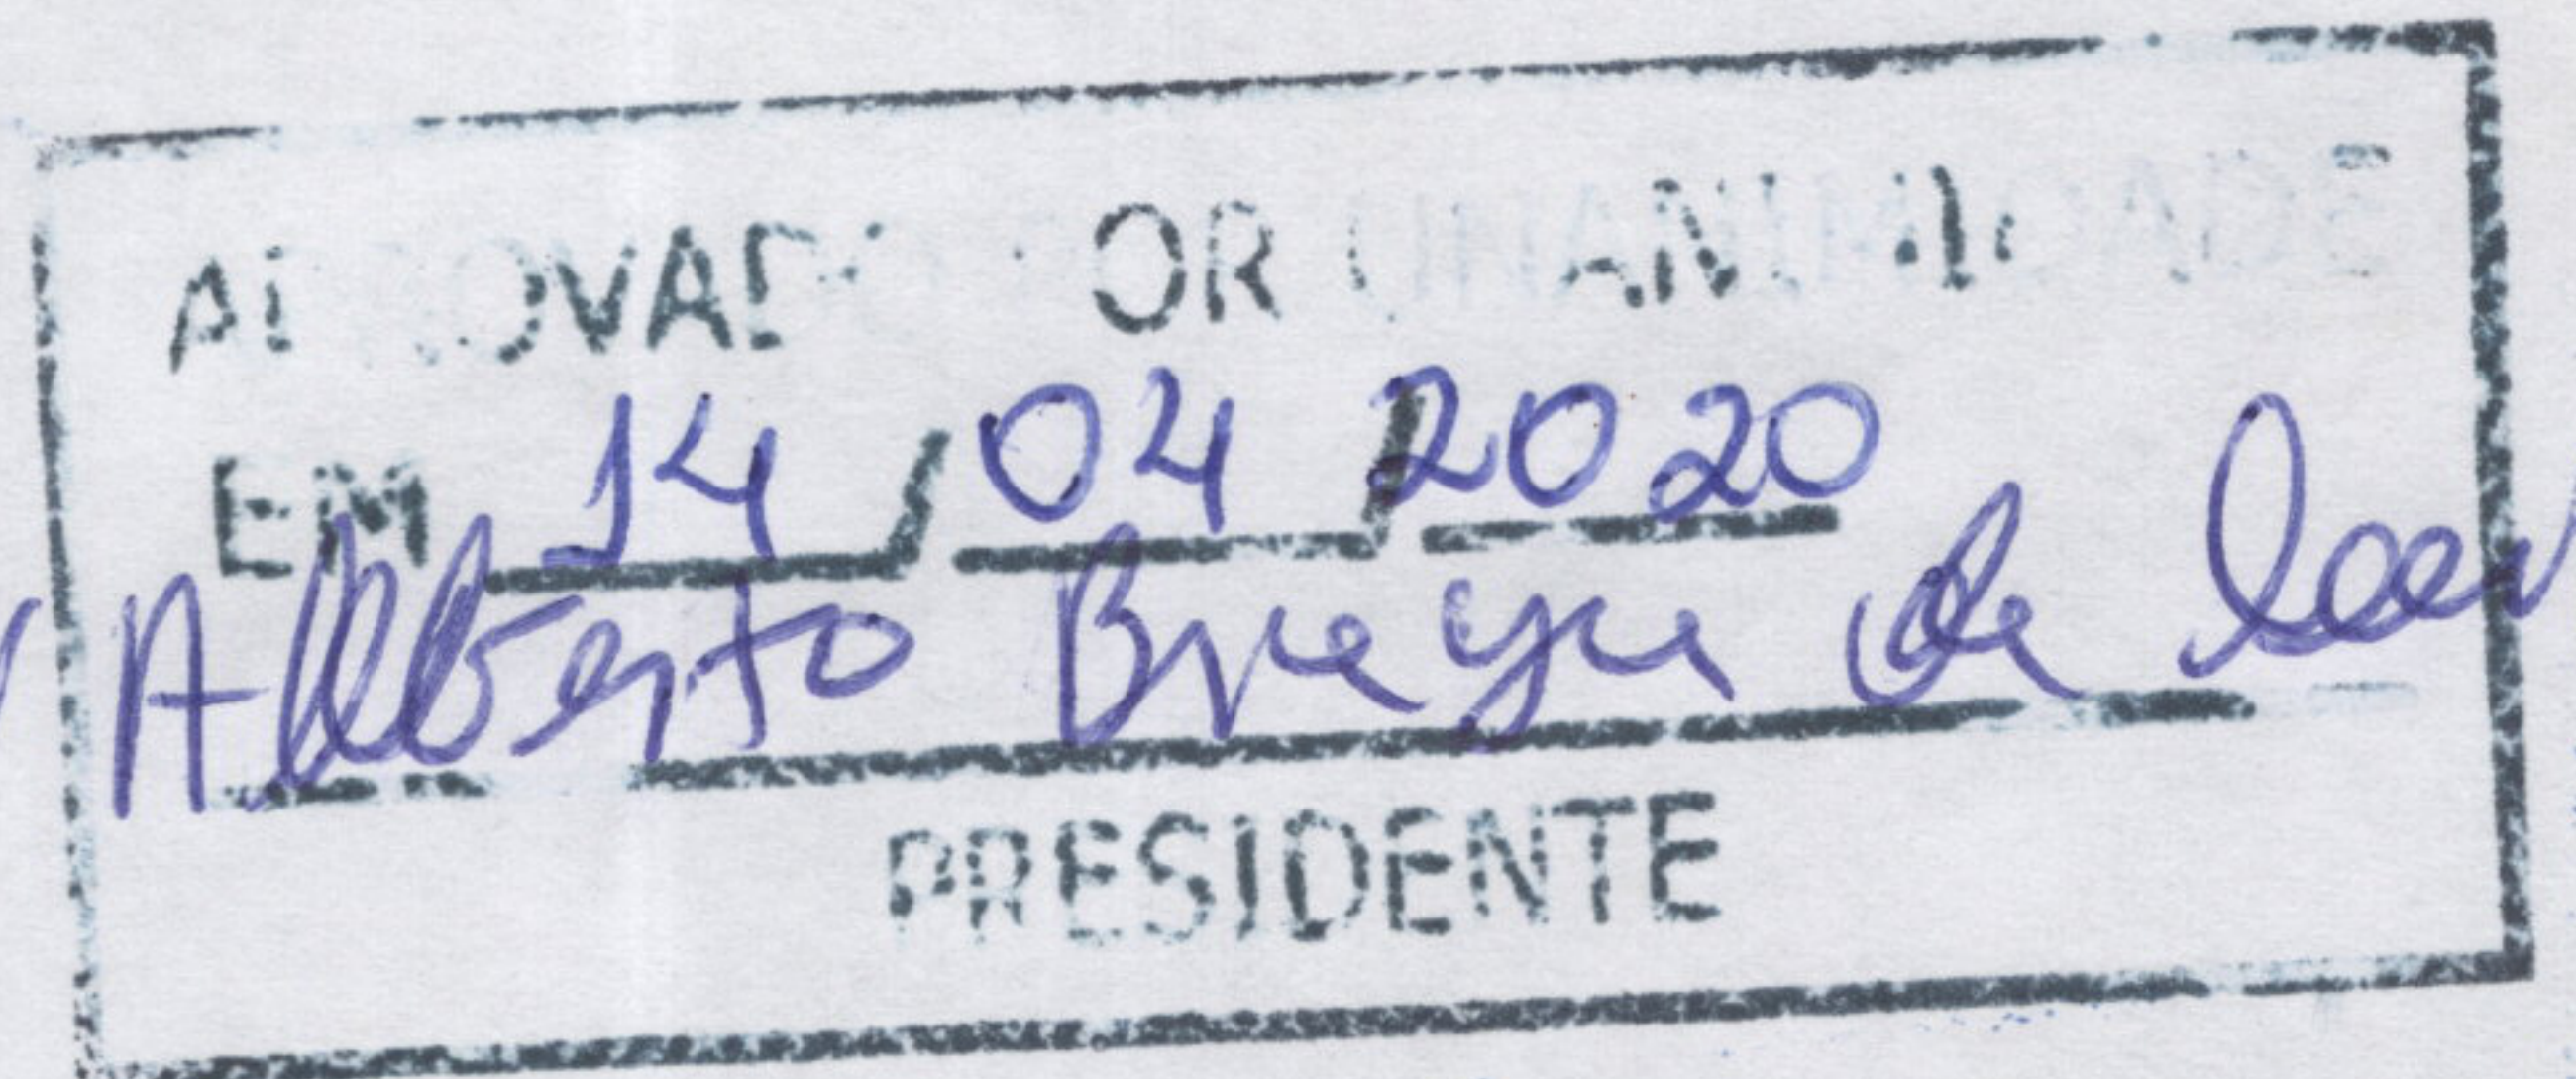 APROVADO POR UNANIMIDADE
EM 14/04/2020
Alberto de
PRESIDENTE